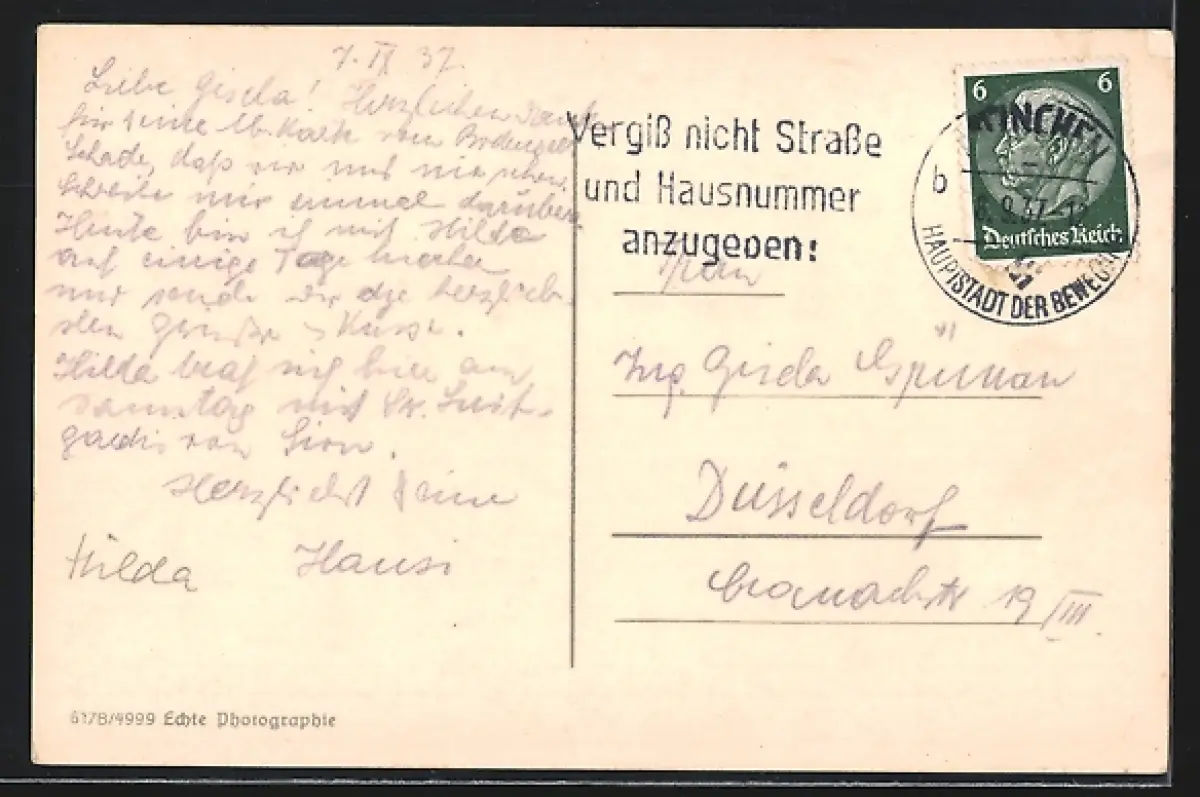 7. IX 37.
Liebe Gisela! Herzlichen Dank
für Deine Karte vom Bodensee
Schade, daß wir uns nie sehen.
Schreibe mir einmal darüber.
Heute bin ich mit Hilda
auf einige Tage hier
und sende Dir die herzlich-
sten Grüße u. Küsse.
Hilda traf ich hier am
Samstag mit Luit-
gardis von Sion.
Herzlichst Deine
Hilda Hansi
6178/4999 Echte Photographie
Vergiß nicht Straße
und Hausnummer
anzugeben!
6 6
Deutsches Reich
MÜNCHEN
b
9.37-12
HAUPTSTADT DER BEWEGUNG
Ing. Gisela
Düsseldorf
Cranachstr 19/III.